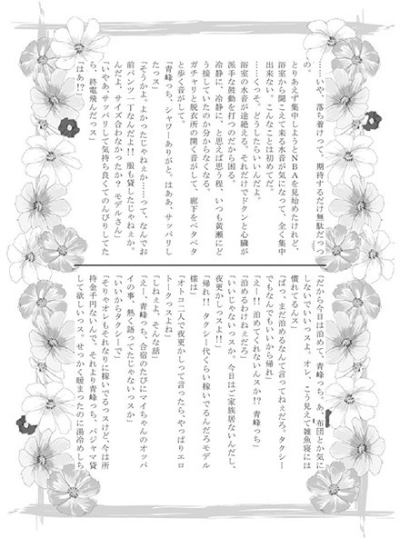 ……いや、落ち着けって、期待するだけ無駄だっつ
の。
とりあえず集中しようとＮＢＡを見始めたけれど、
浴室から聞こえて来る水音が気になって、全く集中
出来ない。こんなことは初めてだ。
……くっそ、どうしたらいいんだよ。
浴室の水音が途絶える。それだけでドクンと心臓が
派手な鼓動を打つのだから困る。
冷静に、冷静に、と思えば思う程、いつも黄瀬にど
う接していたのか分からなくなる。
ガチャリと脱衣所の開く音がして、廊下をペタペタ
と歩く音がして。
「青峰っち、シャワーありがと。はああ、サッパリし
たっス」
「そうかよ。よかったじゃねぇか……って、なんでお
前パンツ一丁なんだよ！！服も貸したじゃねぇか。
んだよ、サイズ合わなかったか？モデルさん」
「いやあ、サッパリして気持ち良くてのんびりしてた
ら、終電飛んだっス」
「はあ！？」
「だから今日は泊めて、青峰っち。あ、布団とか気に
しないでいいっスよ。オレ、こう見えて雑魚寝には
慣れてるんス」
「ばっ、まだ泊めるなんて言ってねぇだろ。タクシー
でもなんでもいいから帰れ」
「えー！！泊めてくれないんスか！？青峰っち」
「泊めるわけねぇだろ」
「いいじゃないっスか、今日はご家族居ないんだし、
夜更かしっスよ！！」
「帰れ！！タクシー代くらい稼いでるんだろモデル
様は」
「オトコ二人で夜更かしって言ったら、やっぱりエロ
トークっスよね」
「しねぇよ、そんな話」
「えー、青峰っち、合宿のたびにマイちゃんのオッパ
イの事、熱く語ってたじゃないっスか」
「いいからタクシーで」
「そりゃオレもそれなりに稼いでるっスけど、今は所
持金千円ないんで。それより青峰っち、パジャマ貸
して欲しいっス。せっかく暖まったのに湯冷めしち